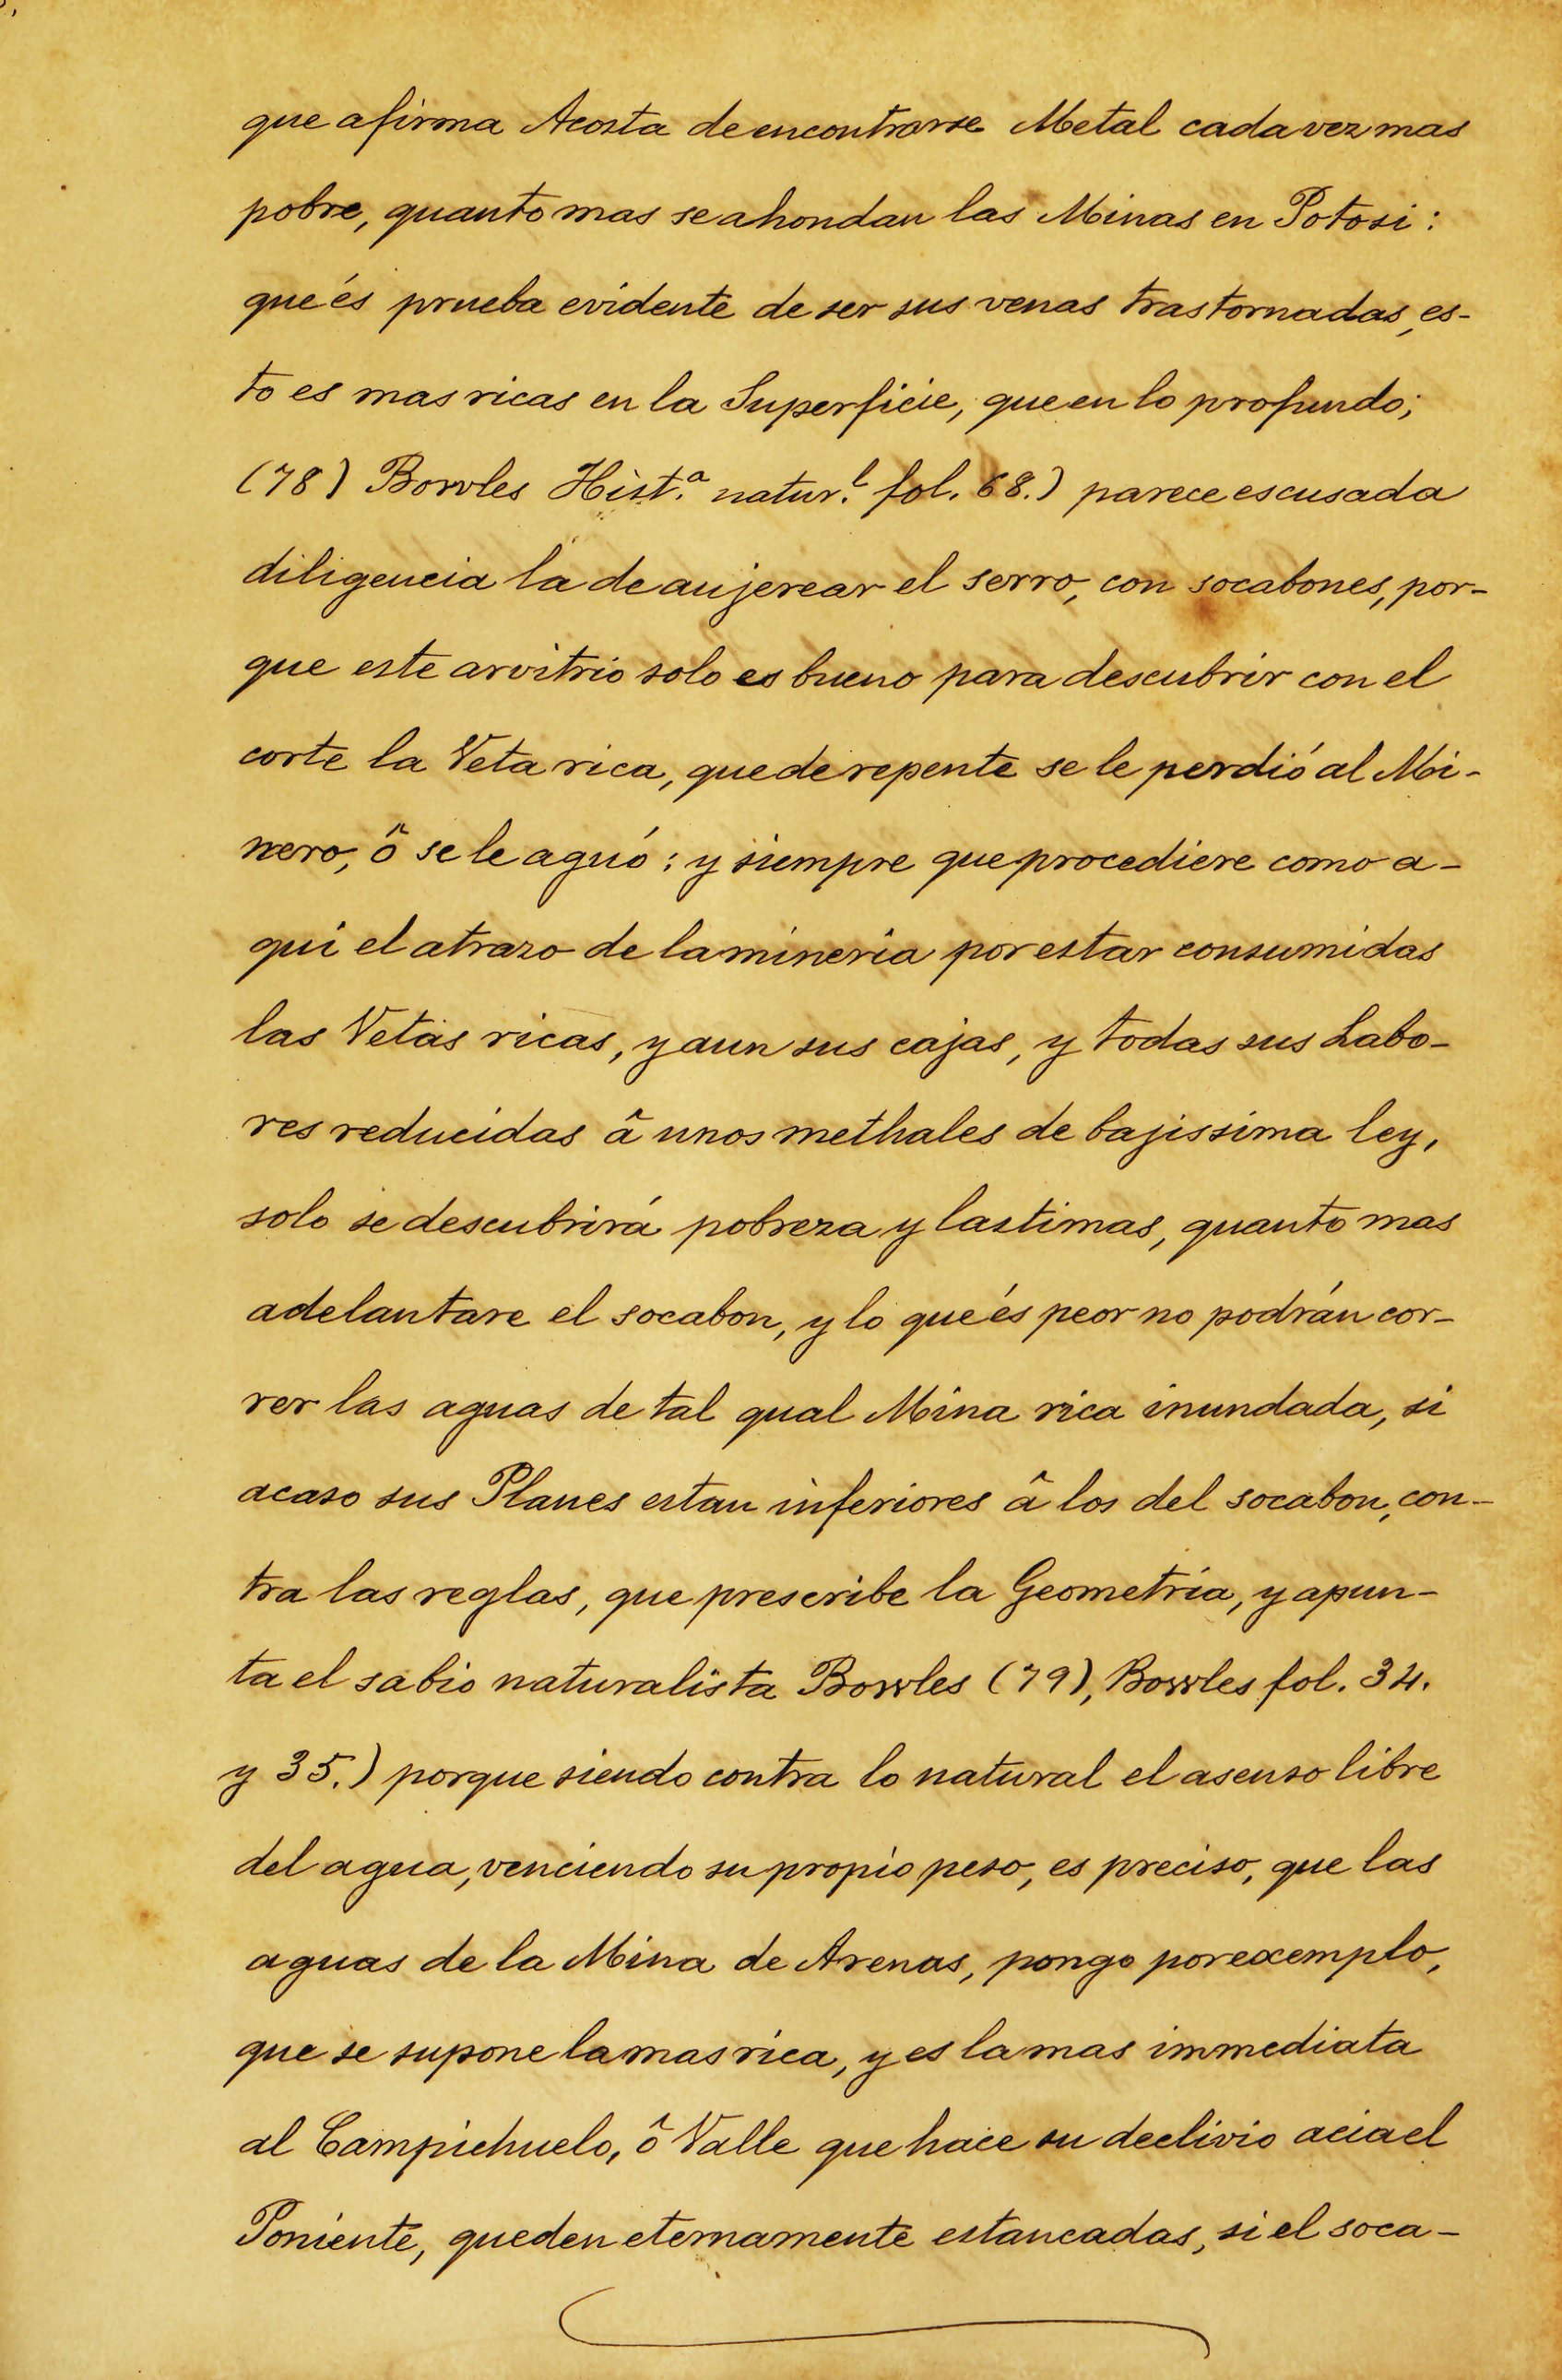 que afirma Acosta de encontrarse Metal cada vez mas
pobre, quanto mas se ahondan las Minas en Potosi:
que és prueba evidente de ser sus venas trastornadas, es-
to es mas ricas en la Superficie, que en lo profundo;
(78) Bowles Hist.ª natur.l fol. 68.) parece escusada
diligencia la de aujerear el serro, con socabones, por-
que este arvitrio solo es bueno para descubrir con el
corte la Veta rica, que de repente se le perdió al Mi-
nero, ô se le aguó: y siempre que procediere como a-
qui el atrazo de la mineria por estar consumidas
las Vetas ricas, y aun sus cajas, y todas sus Labo-
res reducidas â unos methales de bajissima ley,
solo se descubrirá pobreza y lastimas, quanto mas
adelantare el socabon, y lo que és peor no podrán cor-
rer las aguas de tal qual Mina rica inundada, si
acaso sus Planes estan inferiores â los del socabon, con-
tra las reglas, que prescribe la Geometria, y apun-
ta el sabio naturalista Bowles (79), Bowles fol. 34.
y 35.) porque siendo contra lo natural el asenso libre
del agua, venciendo su propio peso, es preciso, que las
aguas de la Mina de Arenas, pongo por exemplo,
que se supone la mas rica, y es la mas immediata
al Campichuelo, ô Valle que hace su declivio acia el
Poniente, queden eternamente estancadas, si el soca-